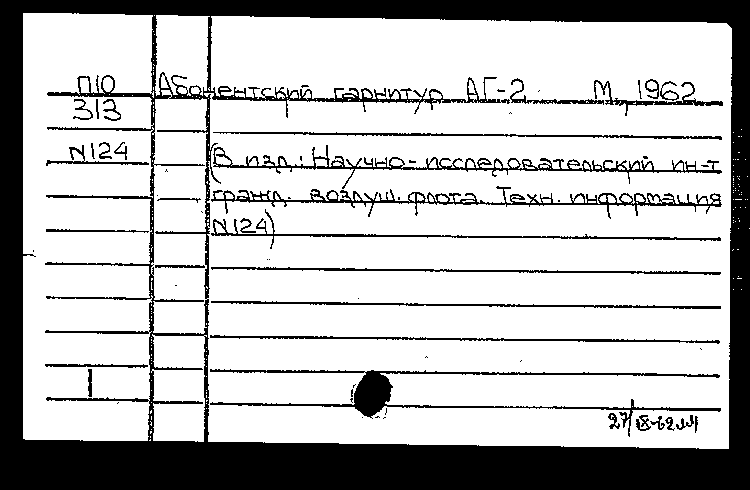 П10 Абонентский гарнитур АГ-2. М., 1962
313
N124 (В изд.: Научно-исследовательский ин-т
гражд. воздуш. флота. Техн. информация
N124)
1
27/IX-62